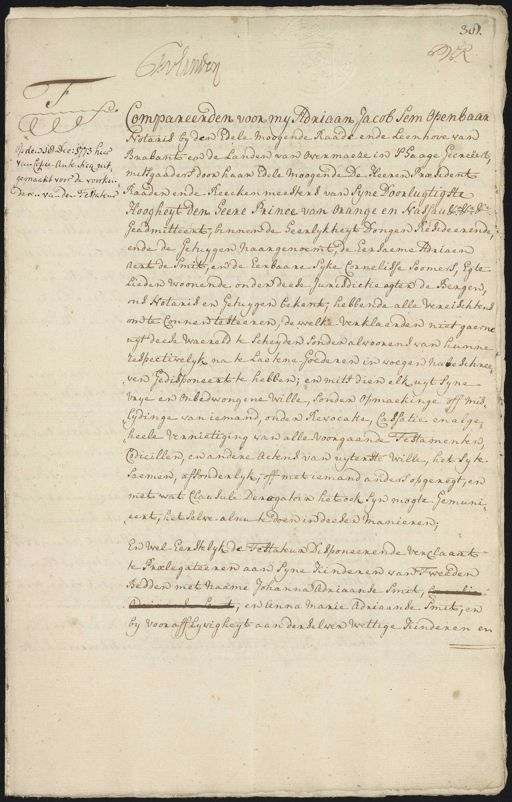 381.
Compareerden voor my Adriaan Jacob Sem Openbaar
Notaris by den Edele Moogende Raade ende Leenhove van
Brabant en de Landen van Overmaeze in S'Hage Gereciert,
mitsgaders door haar Edele Moogende De Heeren Præsident
Raaden ende Reeckenmeesters van Syne Doorlugtigste
Hoogheyt den Heere Prince van Orange en Nassau &a &a &a
Geadmitteert; binnen de Heerlykheyt Dongen Resideerende,
ende de Getuygen Naargenoemt; de Eersaeme Adriaen
Aert de Smit, en de Eerbaare Lyke Cornelisse Soomers, Egte
Lieden woonende onder deese Jurisdictie agter de Bergen,
ons Notaris en Getuygen bekent; hebbende alle Vereischtens
om te Connen testeeren, de welke Verklaerden niet gaerne
uyt deese Waereld te Scheyden Sonder alvoorens van hunne
respectivelyk na te Laetene Goederen in voegen na beschree-
ven Gedisponeert te hebben; en mits dien elk uyt Syne
Vrye en Onbedwongene Wille, Sonder Opmaekinge off mis-
lydinge van iemand, onder Revocatie, Cassatie en alge-
heele Vernietiging van alle Voorgaande Testamenten,
Codicillen, en andere Actens van uyterste Wille, het Syke
Saemen, afsonderlyk, off met iemand anders opgeregt, en
met wat Clausule Derogatoir het ook Syn mogte Gemuni-
eert, het selve als nu te doen in deesen Manieren;
En Wel Eerstelyk de Testateur Disponeerende Verclaart
te Prælegateeren aan Syne Kinderen van Tweeden
Bedden met naame Johanna Adriaanse Smit,
en Anna Marie Adriaanse Smit, en
by vooraflyvigheyt aan derselver Wettige Kinderen en